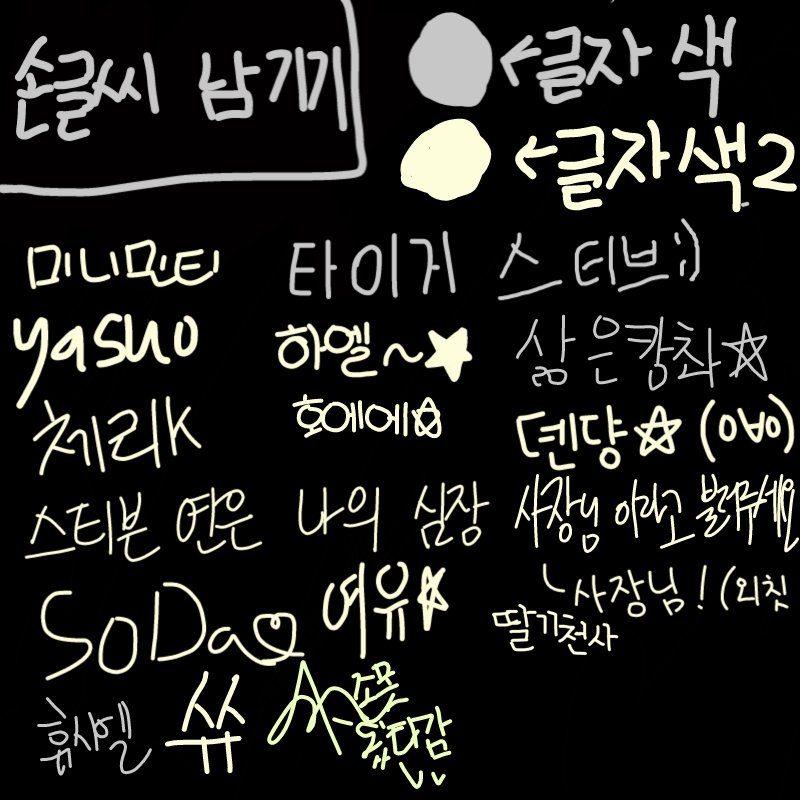 손글씨 남기기
←글자 색
←글자 색2
미니민티 타이거 스티브;)
yasuo 하엘~☆ 삶은캉촤☆
체리K 호에에☆ 덴댱☆ (OvO)
스티븐 연은 나의 심장 사장님 이라고 불러주세요
ㄴ사장님! (외칫
SoDa♡ 여유☆ 딸기천사
휴사엘 쓔 단감